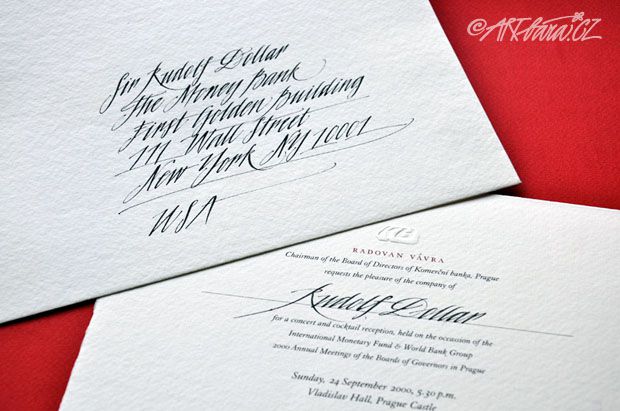 ©ARTbara.CZ
Sir Rudolf Dollar
The Money Bank
First Golden Building
111 Wall Street
New York NY 10001
USA
KB
RADOVAN VÁVRA
Chairman of the Board of Directors of Komerční banka, Prague
requests the pleasure of the company of
Rudolf Dollar
for a concert and cocktail reception, held on the occasion of the
International Monetary Fund & World Bank Group
2000 Annual Meetings of the Boards of Governors in Prague
Sunday, 24 September 2000, 5.30 p.m.
Vladislav Hall, Prague Castle